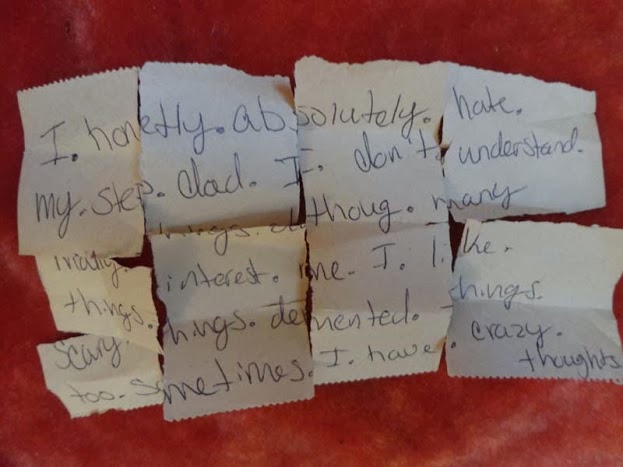 I. honestly. absolutely. hate.
my. step. dad. I. don't understand.
things. althoug. many
things. interest. me. I. like.
scary things. demented. things.
too. sometimes. I. have. crazy.
thoughts